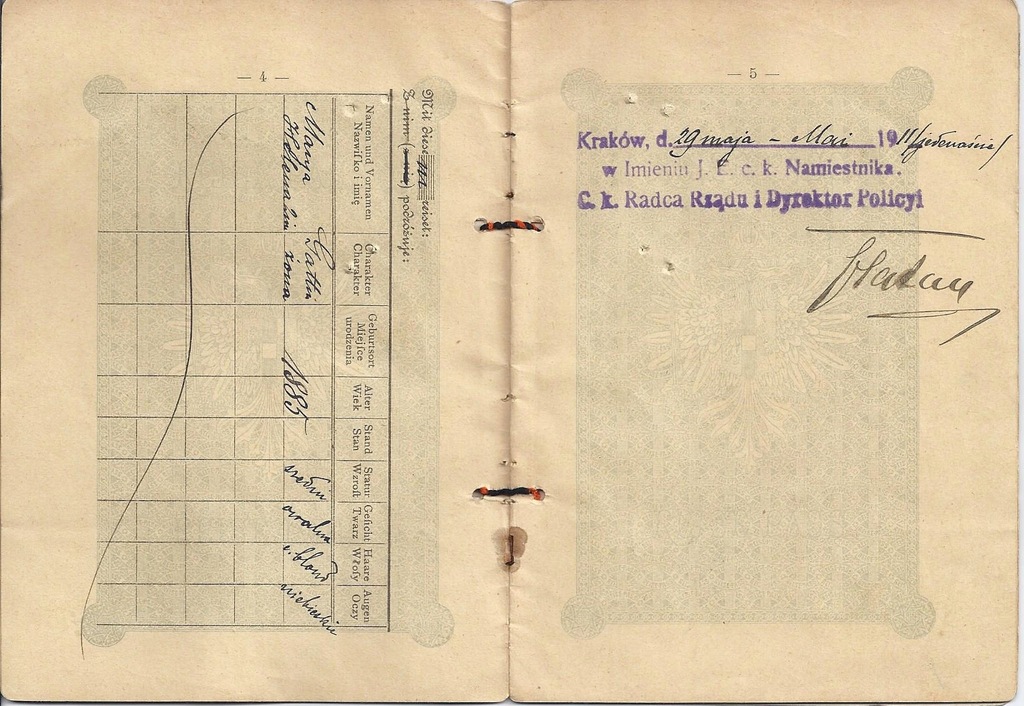 — 4 —
Mit diesem reiset:
Z nim (nią) podróżuje:
Namen und Vornamen
Nazwiſko i imię
Charakter
Charakter
Geburtsort
Miejſce
urodzenia
Alter
Wiek
Stand
Stan
Statur
Wzroſt
Geſicht
Twarz
Haare
Włoſy
Augen
Oczy
Marya
Helena
żona
1885
średni
owalna
c. blond
niebieskie
— 5 —
Kraków, d. 29 maja - Mai 1911 /jedenaście/
w Imieniu J. E. c. k. Namiestnika.
C. k. Radca Rządu i Dyrektor Policyi